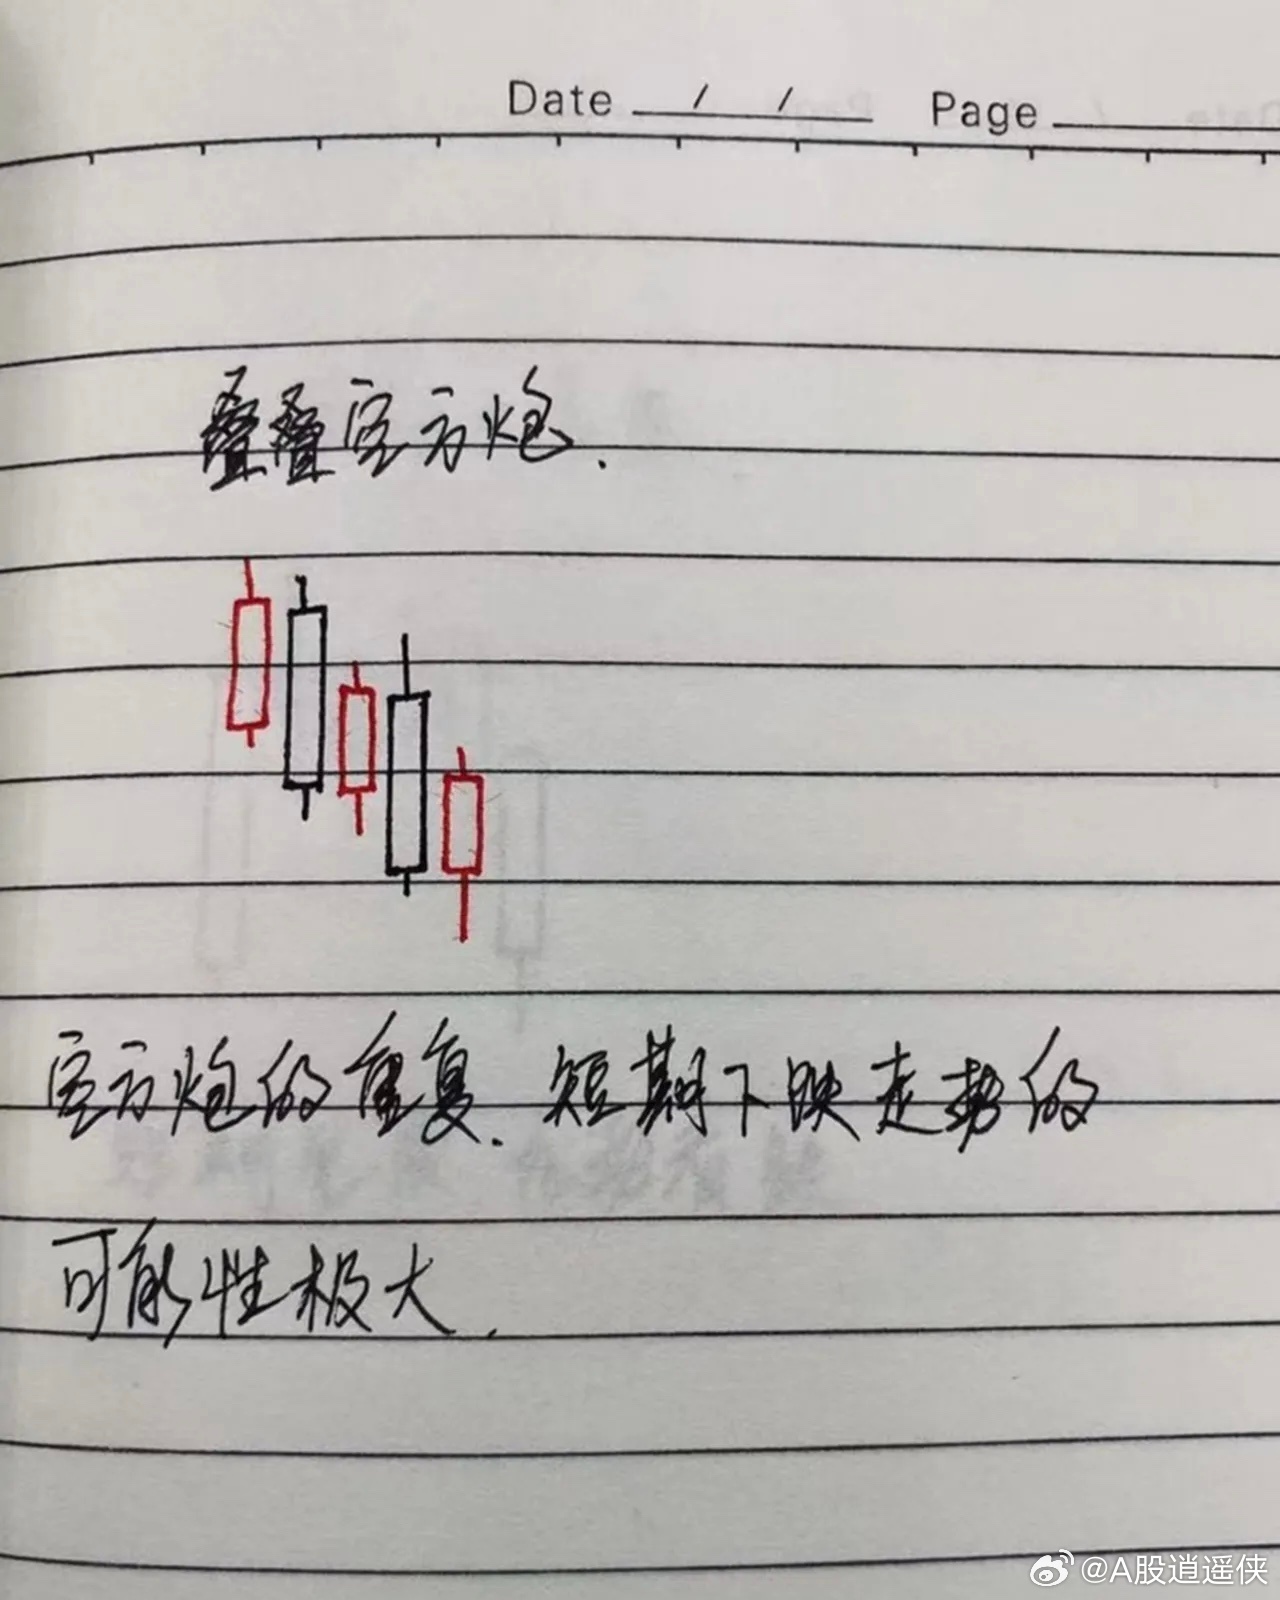 Date / / Page
叠叠空方炮.
空方炮的重复.短期下跌走势的
可能性极大.
@A股逍遥侠